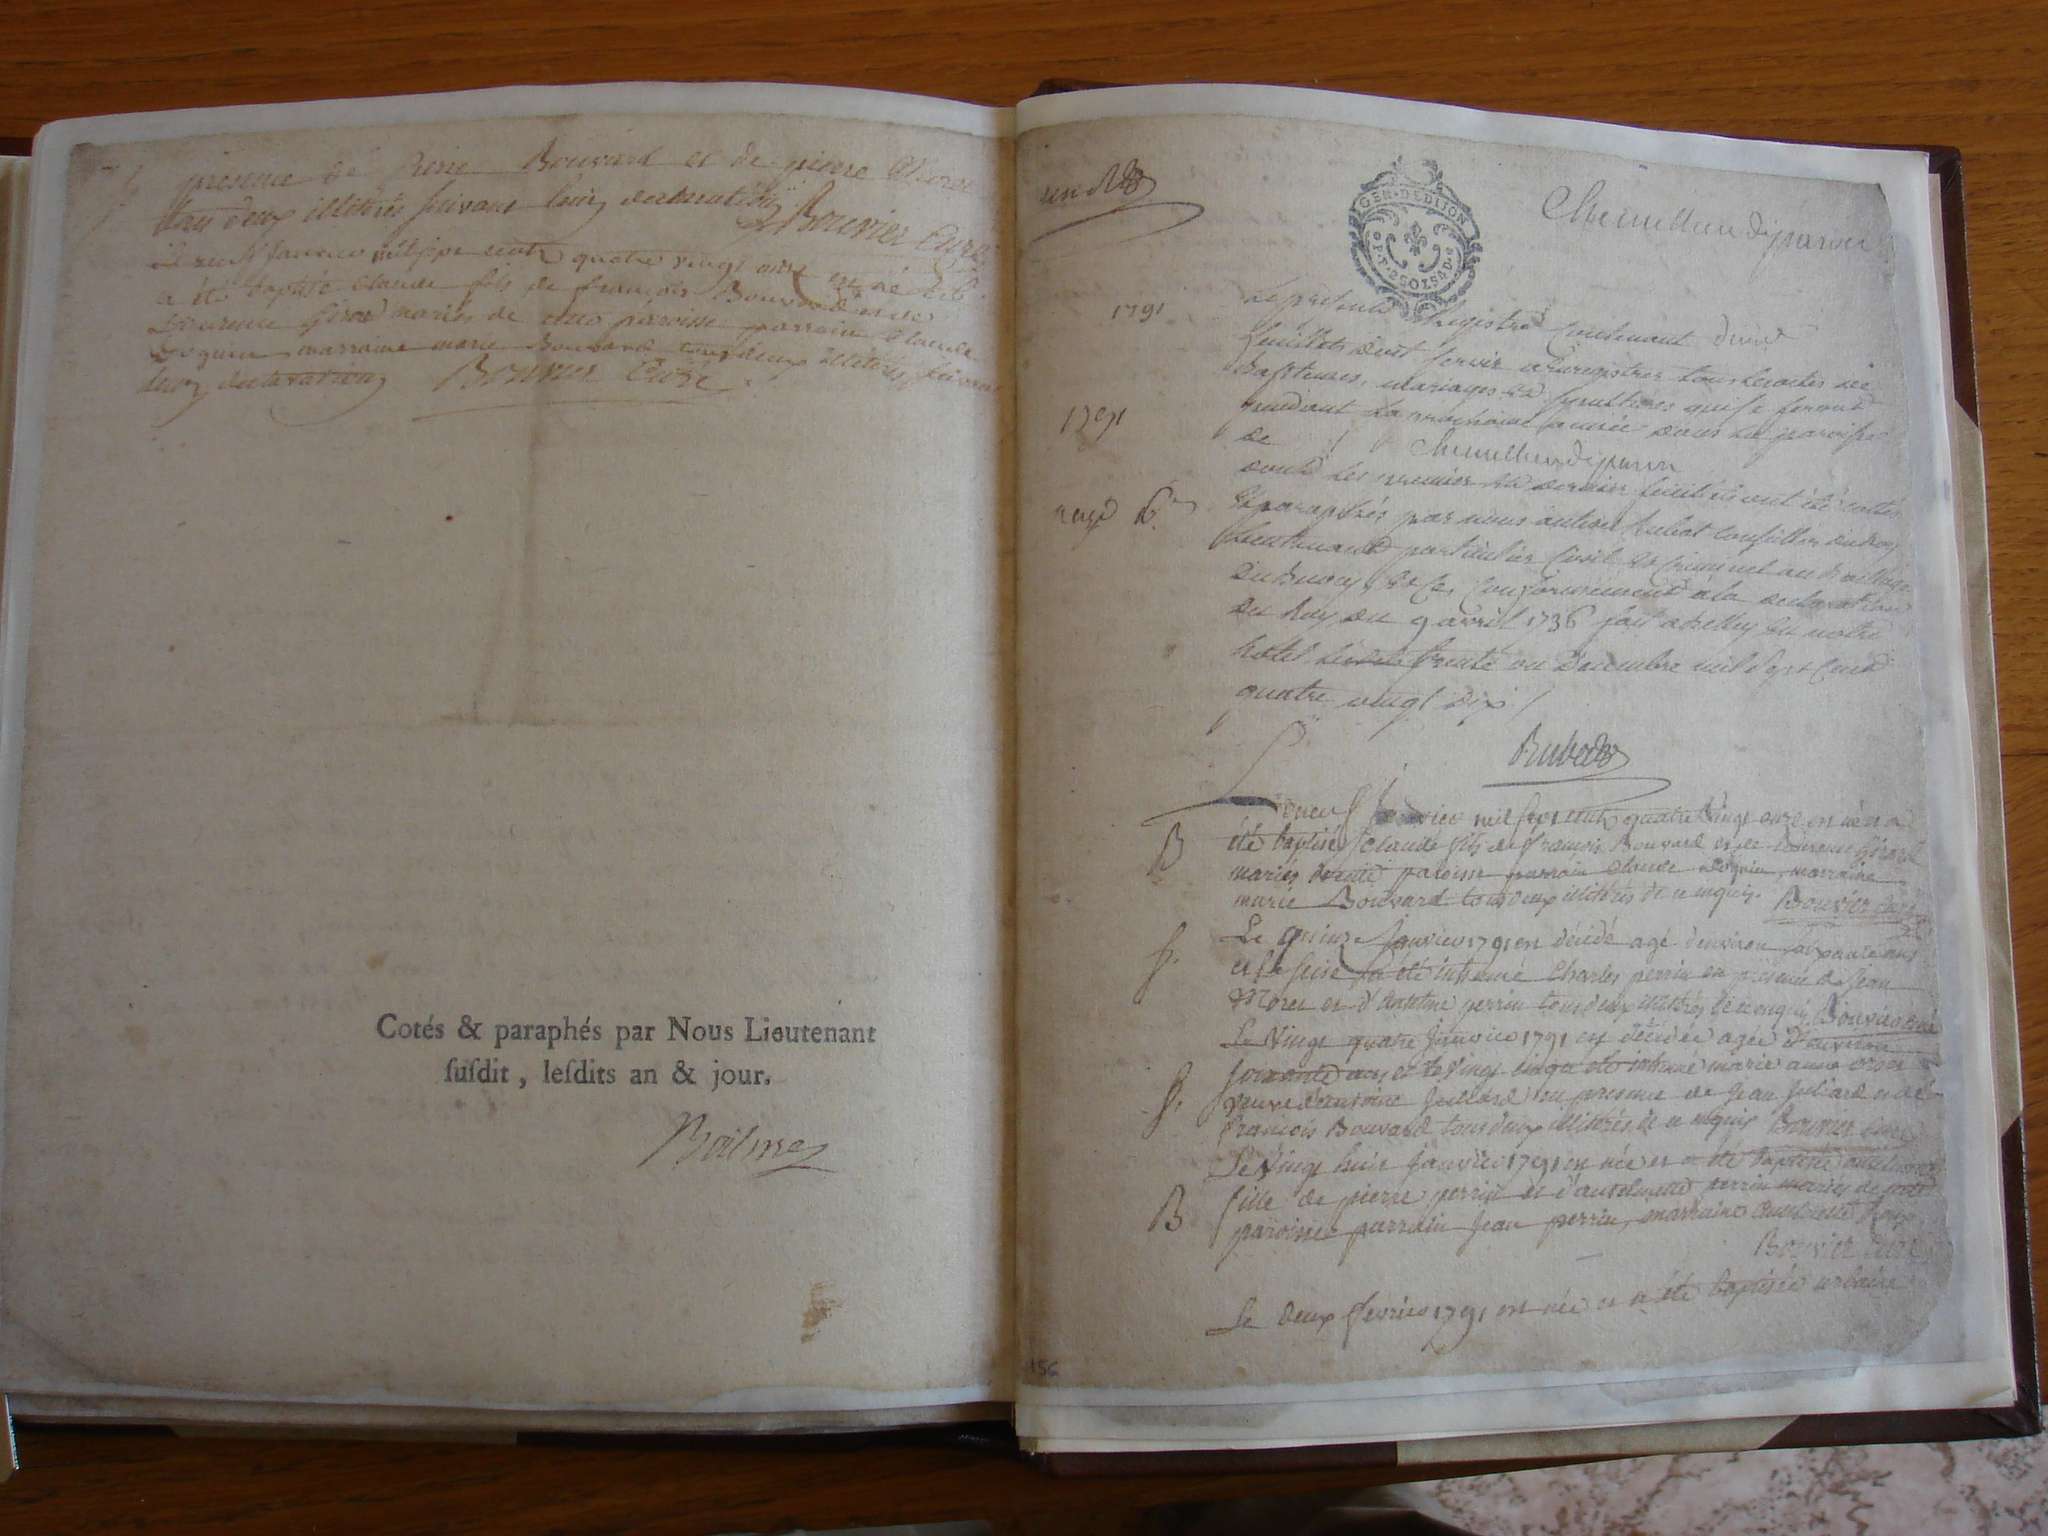 presence de Bouvard et de pierre
tous deux illitérés suivant leur declaration Bouvier Curé
janvier mil sept cents quatre vingt onze est né et
a été baptisé Claude fils de françois Bouvard et de
Laurence Girod mariés de cette paroisse parrain Claude
marraine marie Bouvard tous deux illitérés suivant
leur declaration Bouvier Curé
Cotés & paraphés par Nous Lieutenant
ſuſdit, leſdits an & jour.
GEN·DE DIJON
Chemillieu de parves
1791
Le present Registre Contenant
feuillets doit servir a Enregistrer tous les actes de
Baptemes, mariages et sepultures qui se feront
pendant La prochaine année dans La paroisse
1791
de Chemillieu de parves
dont les premier et dernier feuillets ont été cottés
et paraphés par nous antoine Rubat Conseiller du Roy
Lieutenant particulier Civil et Criminel au Bailliage
du Bugey Conformement a la declaration
du Roy du 9 avril 1736 fait a Belley en notre
hotel trente un Decembre mil sept Cent
quatre vingt dix /
Rubat
janvier mil sept cents quatre vingt onze est né et a
B
été baptisé Claude fils de francois Bouvard et de Laurence Girod
mariés de cette paroisse parrain Claude marraine
marie Bouvard tous deux illitérés de ce enquis. Bouvier Curé
Le quinze Janvier 1791 est décédé agé d'environ soixante ans
et le seize a été inhumé Charles perrin en presence de Jean
Morel et d'Anselme perrin tous deux illitérés de ce enquis Bouvier Curé
Le Vingt quatre Janvier 1791 est décédée agée d'environ
soixante ans et le vingt cinq a été inhumé marie anne
veuve d'antoine Juillard en presence de Jean Juillard et de
francois Bouvard tous deux illitérés de ce enquis Bouvier Curé
Le Vingt huit Janvier 1791 est née et a été baptisée
B
fille de pierre perrin et d'antelmette perrin mariés de cette
paroisse parrain Jean perrin, marraine
Bouvier Curé
Le Deux fevrier 1791 est née et a été baptisée urbaine
156